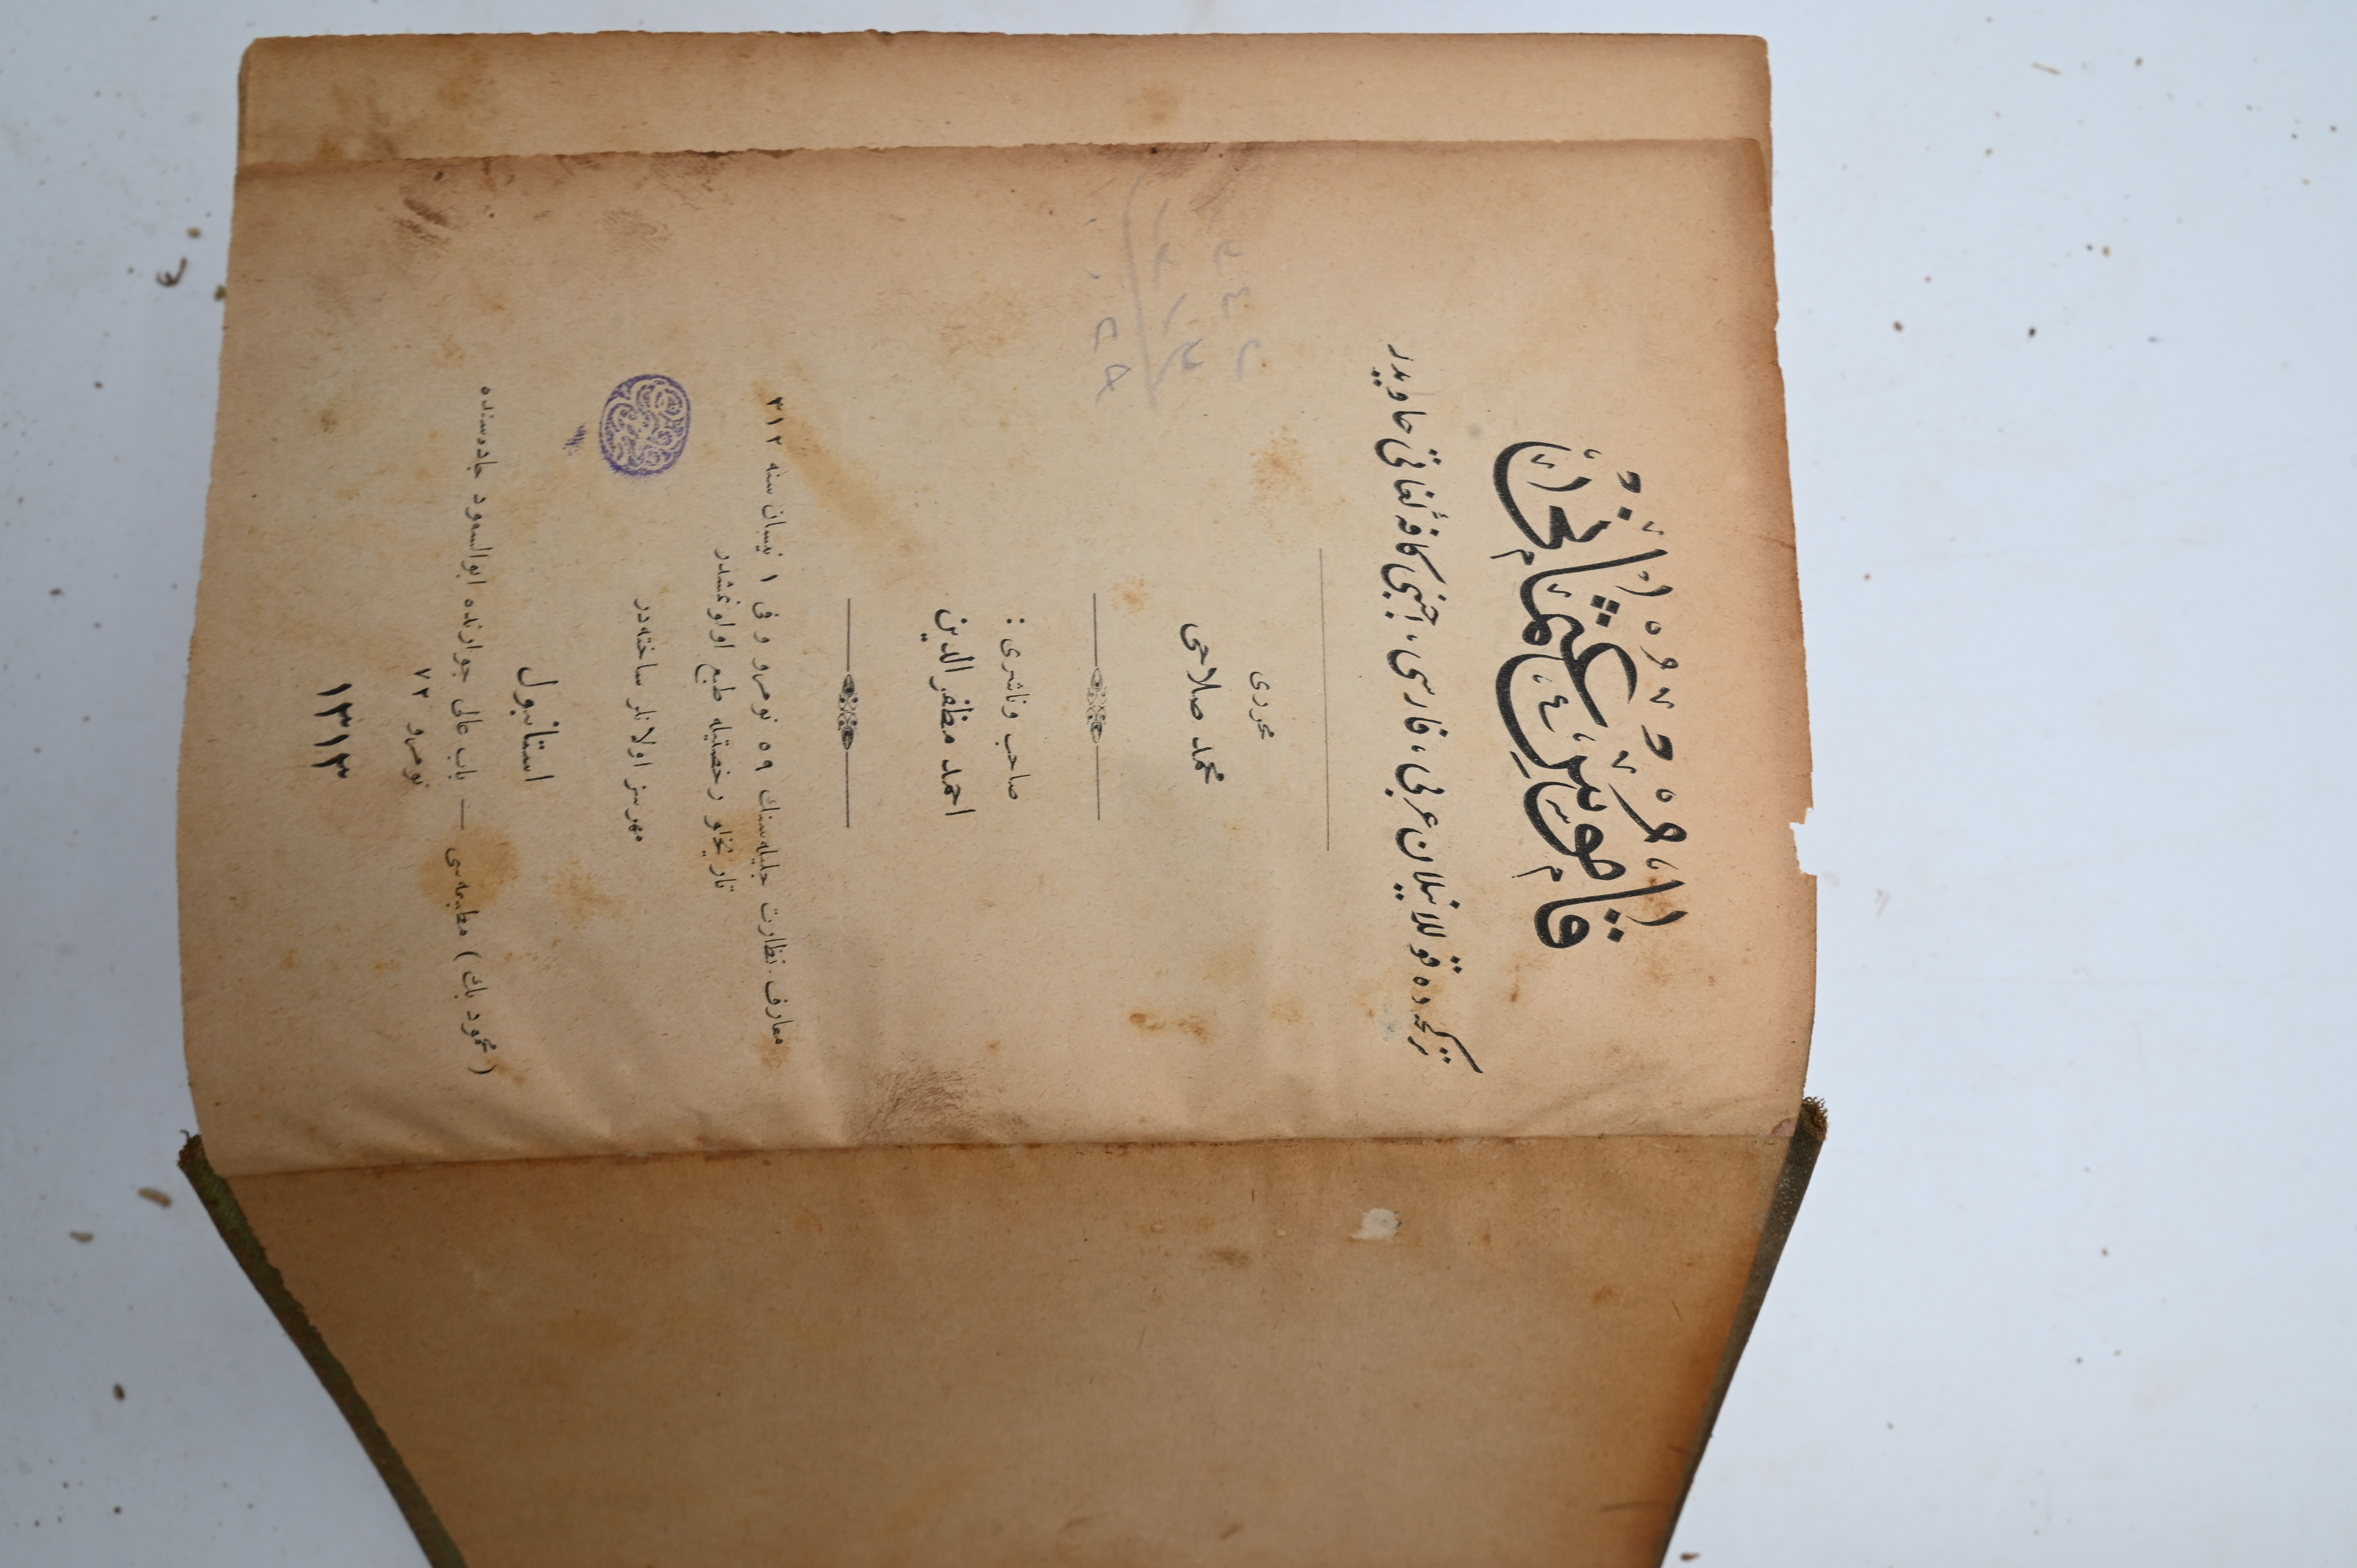 قاموس عثمانی
تركجه ده قوللانیلان عربی، فارسی، اجنبی كافهٔ لغاتی حاویدر
محرری
محمد صلاحی
صاحب و ناشری :
احمد مظفر الدین
معارف نظارت جلیله سنك ٥٩ نومرو و فی ١ نیسان سنه ٣١٢
تاریخلو رخصتیله طبع اولونمشدر
مهرسز اولانلر ساخته در
استانبول
( محمود بك ) مطبعه سی — باب عالی جوارنده ابوالسعود جاده سنده
نومرو ٧٢
١٣١٣